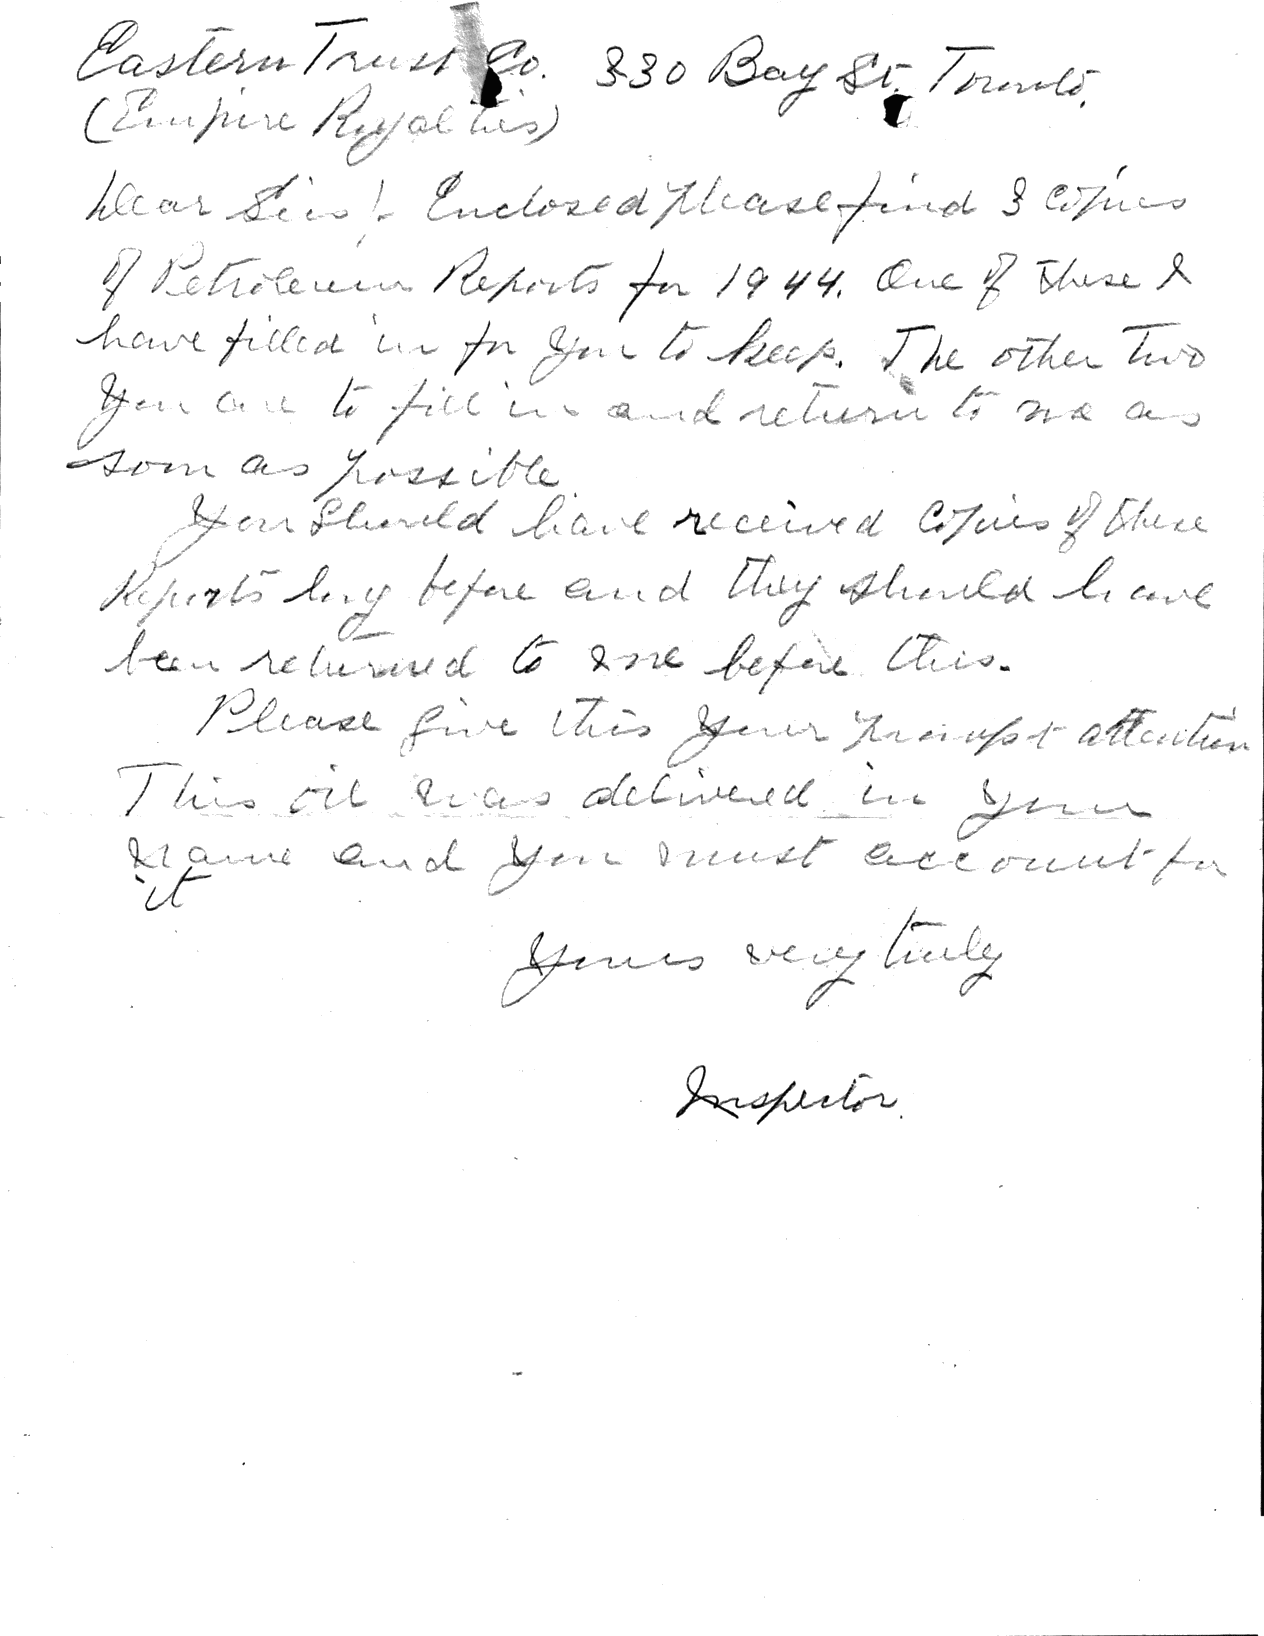 Eastern Trust Co. 330 Bay St. Toronto.
(Empire Royalties)
Dear Sirs!- Enclosed please find 3 copies
of Petroleum Reports for 1944. One of these I
have filled in for you to keep. The other two
you are to fill in and return to me as
soon as possible
You should have received copies of these
Reports long before and they should have
been returned to me before this.
Please give this your prompt attention
This oil was delivered in your
name and you must account for
it
Yours very truly
Inspector.